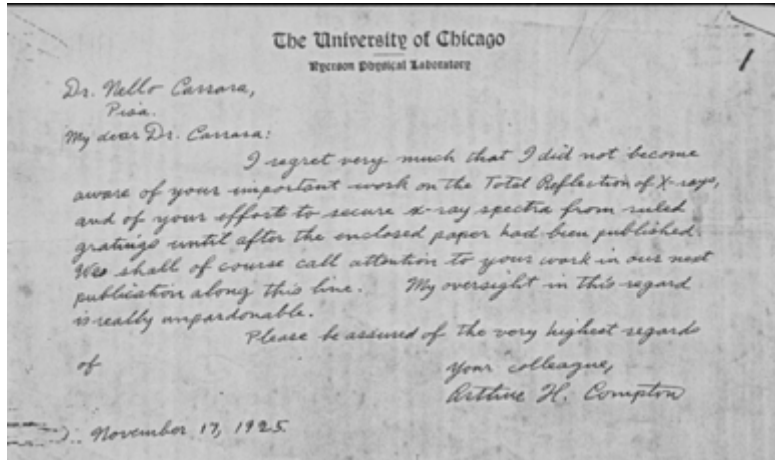 The University of Chicago
Ryerson Physical Laboratory
1
Dr. Nello Carrara,
Pisa.
My dear Dr. Carrara:
I regret very much that I did not become
aware of your important work on the Total Reflection of X-rays,
and of your effort to secure x-ray spectra from ruled
gratings until after the enclosed paper had been published.
We shall of course call attention to your work in our next
publication along this line. My oversight in this regard
is really unpardonable.
Please be assured of the very highest regards
of
Your colleague,
Arthur H. Compton
November 17, 1925.